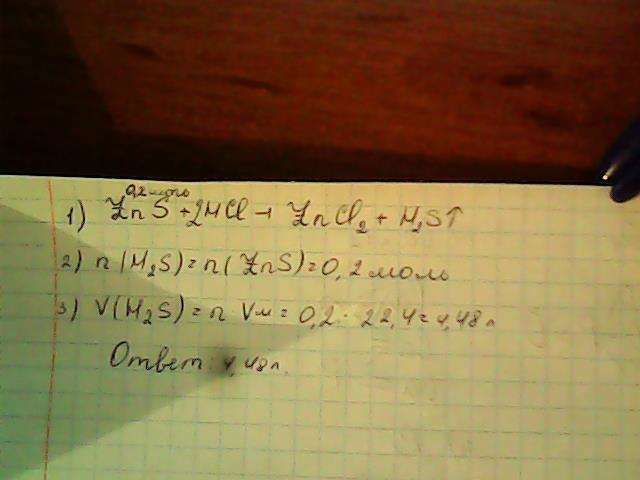 0,2 моль
1) ZnS + 2HCl → ZnCl₂ + H₂S↑
2) n (H₂S) = n( ZnS) = 0,2 моль
3) V(H₂S) = n Vм = 0,2 · 22,4 = 4,48 л
Ответ: 4,48 л.